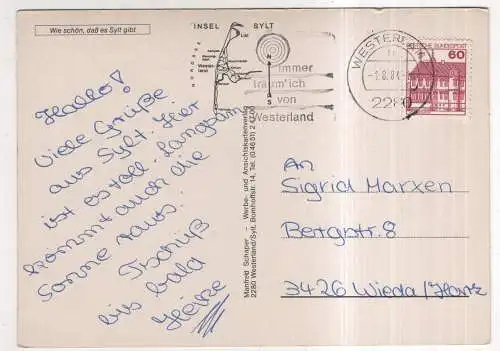 Wie schön, daß es Sylt gibt
INSEL SYLT
List
Westerland
N
S
immer
träum' ich
von
Westerland
WESTERLAND
-1.8.84
2280
DEUTSCHE BUNDESPOST
60
Hallo!
Viele Grüße
aus Sylt. Hier
ist es toll. Langsam
kommt auch die
Sonne raus.
Tschüß
bis bald
Heike
Manfred Schaper – Werbe- und Ansichtskartenverlag
2280 Westerland/Sylt, Bomhoffstr. 14, Tel. (0 46 51)
An
Sigrid Marxen
Bergstr. 8
3426 Wieda/Harz